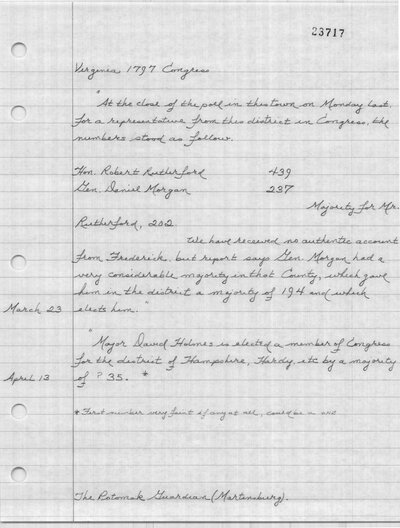 23717
Virginia 1797 Congress
"At the close of the poll in this town on Monday last,
for a representative from this district in Congress, the
numbers stood as follow.
Hon. Robert Rutherford 439
Gen. Daniel Morgan 237
Majority for Mr.
Rutherford, 202.
We have received no authentic account
from Frederick, but report says Gen. Morgan had a
very considerable majority in that County, which gave
him in the district a majority of 194 and which
March 23 elects him."
"Major David Holmes is elected a member of Congress
for the district of Hampshire, Hardy, etc by a majority
April 13 of ? 35. *
* First number very faint if any at all, could be a one.
The Potomak Guardian (Martinsburg).